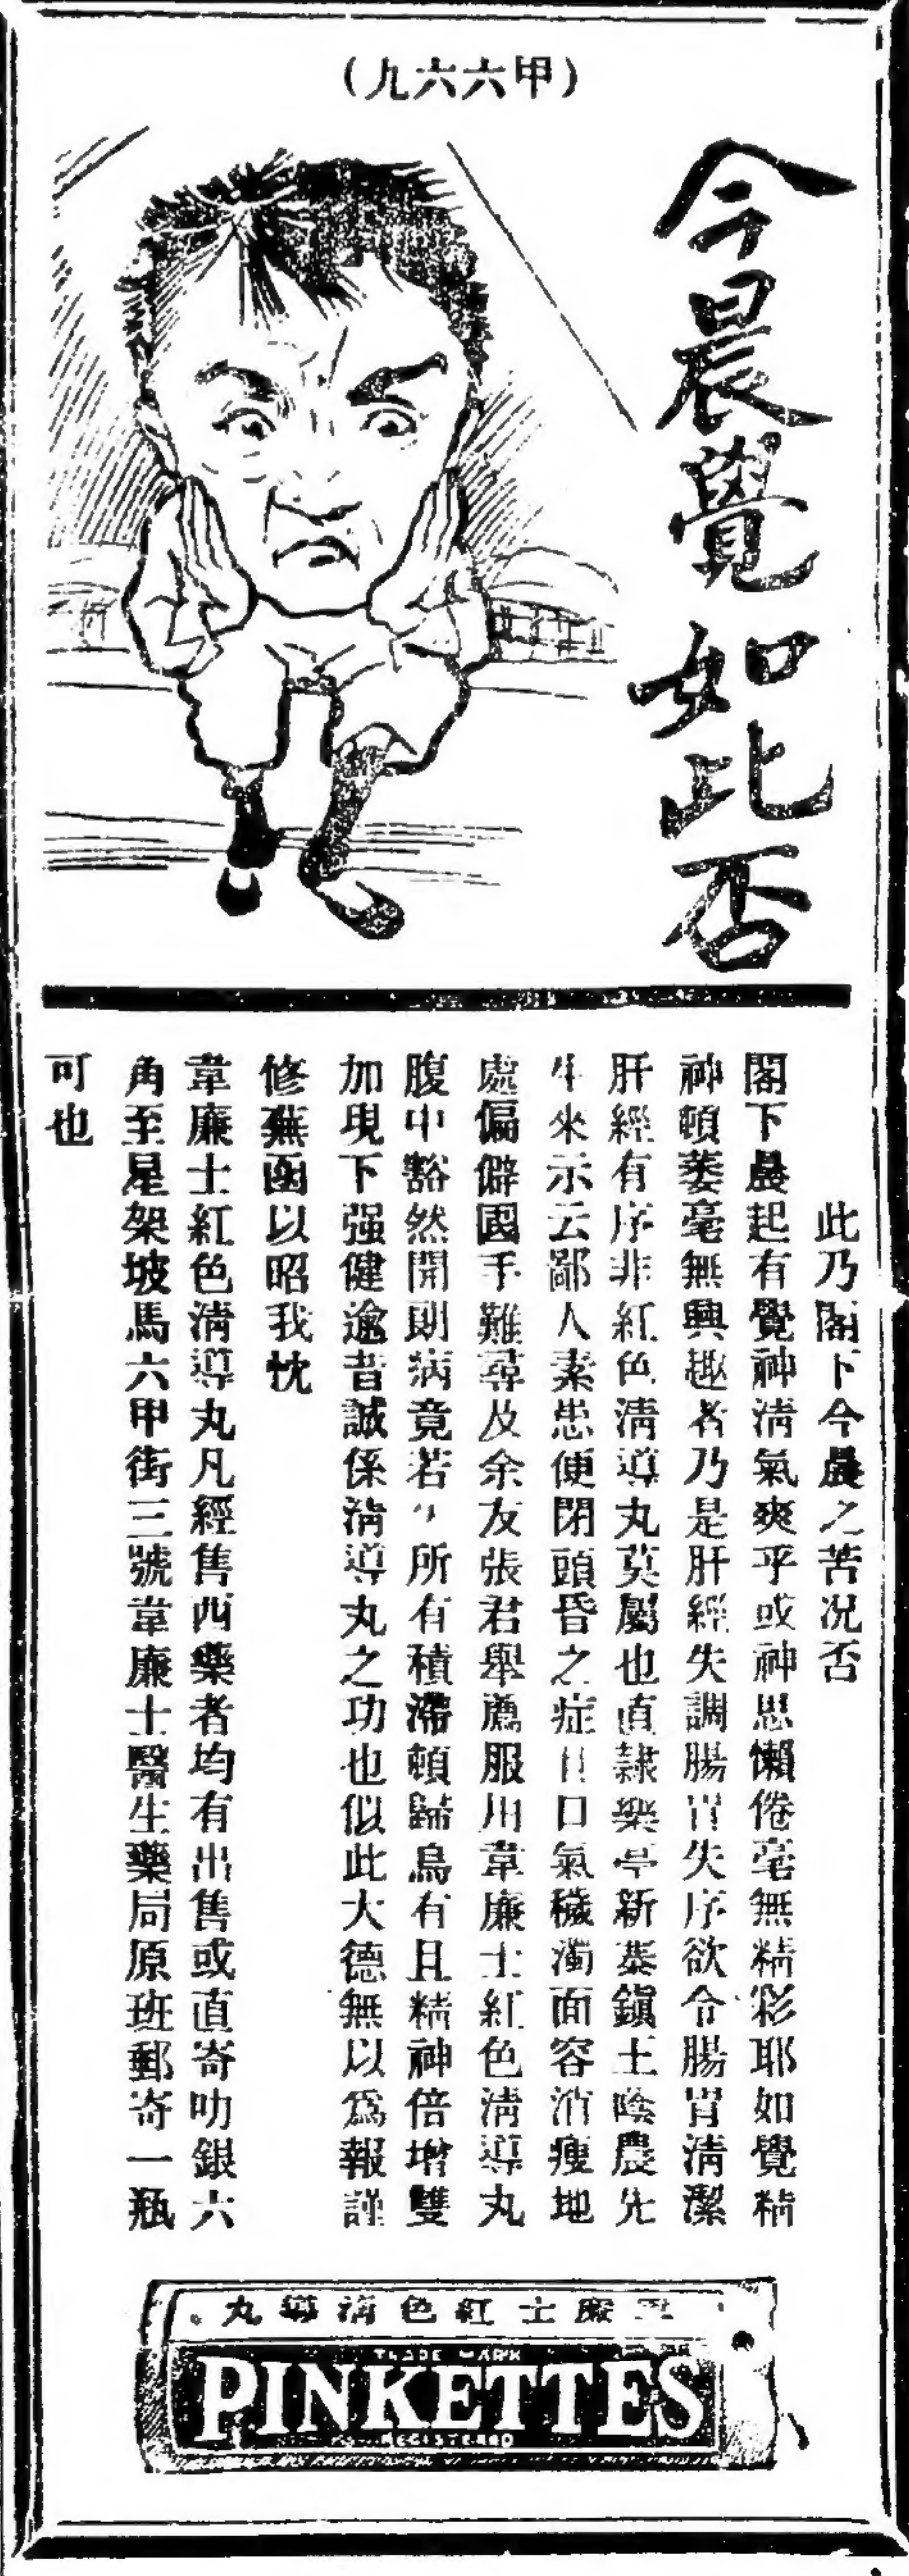 (九六六甲)
今晨覺如此否
此乃閣下今晨之苦况否
閣下晨起有覺神淸氣爽乎或神思懶倦毫無精彩耶如覺精
神頓萎毫無興趣者乃是肝經失調腸胃失序欲令腸胃淸潔
肝經有序非紅色淸導丸莫屬也直隸樂亭新寨鎭王陰農先
生來示云鄙人素患便閉頭昏之症且口氣穢濁面容消瘦地
處偏僻國手難尋及余友張君舉薦服用韋廉士紅色淸導丸
腹中豁然開朗病竟若失所有積滯頓歸烏有且精神倍增雙
加現下强健逾昔誠係淸導丸之功也似此大德無以爲報謹
修蕪函以昭我忱
韋廉士紅色淸導丸凡經售西藥者均有出售或直寄叻銀六
角至星架坡馬六甲街三號韋廉士醫生藥局原班郵寄一瓶
可也
丸導淸色紅士廉韋
TRADE MARK
PINKETTES
REGISTERED